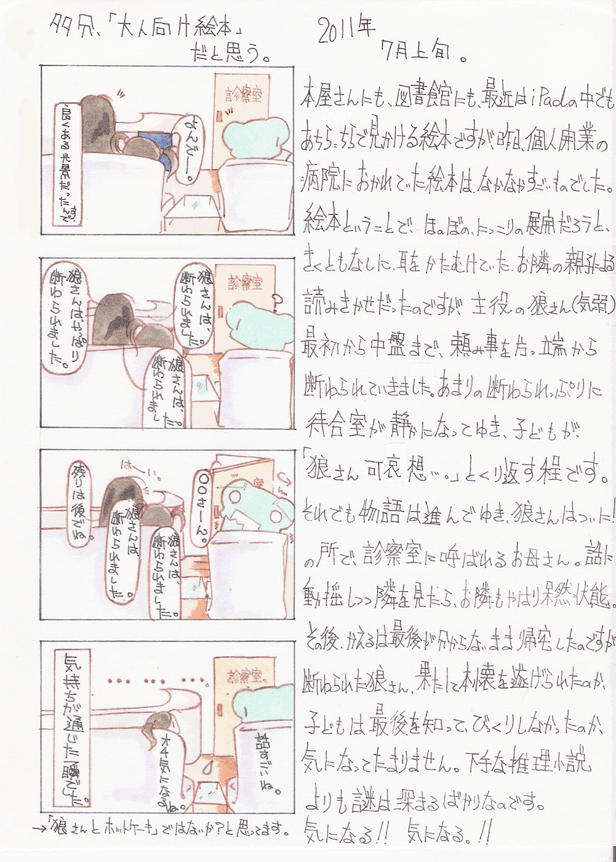 多分、「大人向け絵本」
だと思う。
2011年
7月上旬。
診察室
なんでー。
良くある光景だったんですが
診察室
狼さんは、断わられました。
狼さんは、断わられました。
狼さんはやっぱり断わられました。
〇〇さーん。
はーい。
狼さんは、断わられました。
狼さんは、断わられました。
残りは後でね。
診察室。
・・・・・・・
話すごいね。
オチ気になるね。
気持ちが通じた一瞬でした。
→「狼さんとホットケーキ」ではないか?と思ってます。
本屋さんにも、図書館にも、最近はiPadの中でも
あちらこちらで見かける絵本ですが昨日、個人開業の
病院におかれていた絵本は、なかなかすごいものでした。
絵本ということで、ほのぼの、にっこりの展開だろうと、
きくともなしに、耳をかたむけていた、お隣の親子による
読みきかせだったのですが 主役の狼さん(気弱)
最初から中盤まで、頼み事を片っ端から
断わられていきました。あまりの断わられっぷりに
待合室が静かになってゆき、子どもが、
「狼さん 可哀想…。」とくり返す程です。
それでも物語は進んでゆき、狼さんはついに!
の所で、診察室に呼ばれるお母さん。話に
動揺しつつ隣を見たら、お隣もやはり呆然状態。
その後、かえるは最後が分からないまま帰宅したのですが
断わられた狼さん、果たして本懐を遂げられたのか、
子どもは最後を知って、びっくりしなかったのか、
気になってたまりません。下手な推理小説
よりも謎は深まるばかりなのです。
気になる!! 気になる。!!